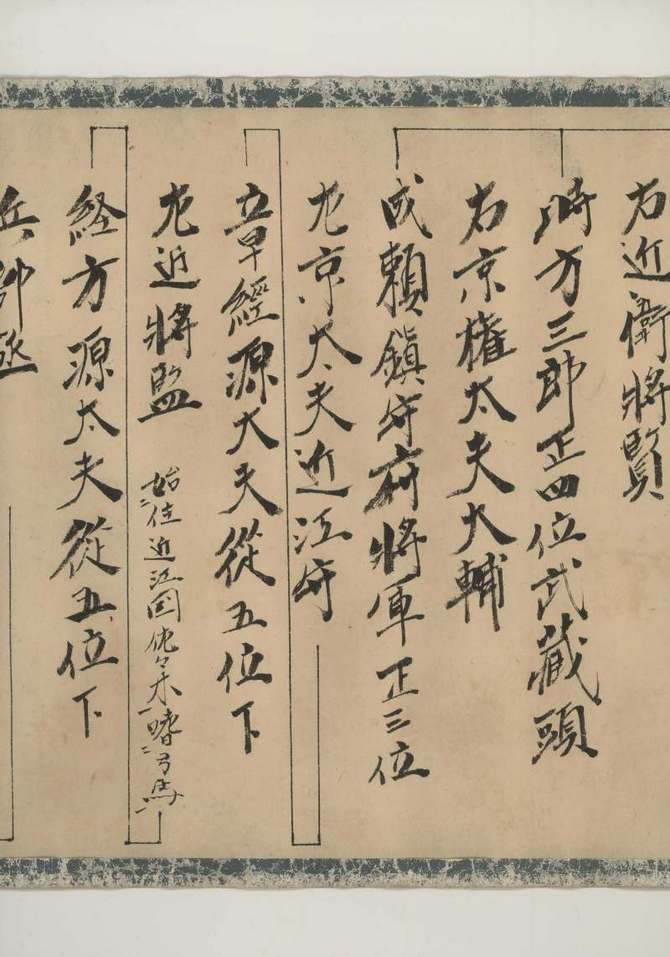 右近衛将監
時方三郎正四位武蔵頭
右京権太夫大輔
成頼鎮守府将軍正三位
左京太夫近江守
章經源大夫従五位下
左近将監
始住近江国佐々木嗜弓馬
経方源太夫従五位下
兵部丞